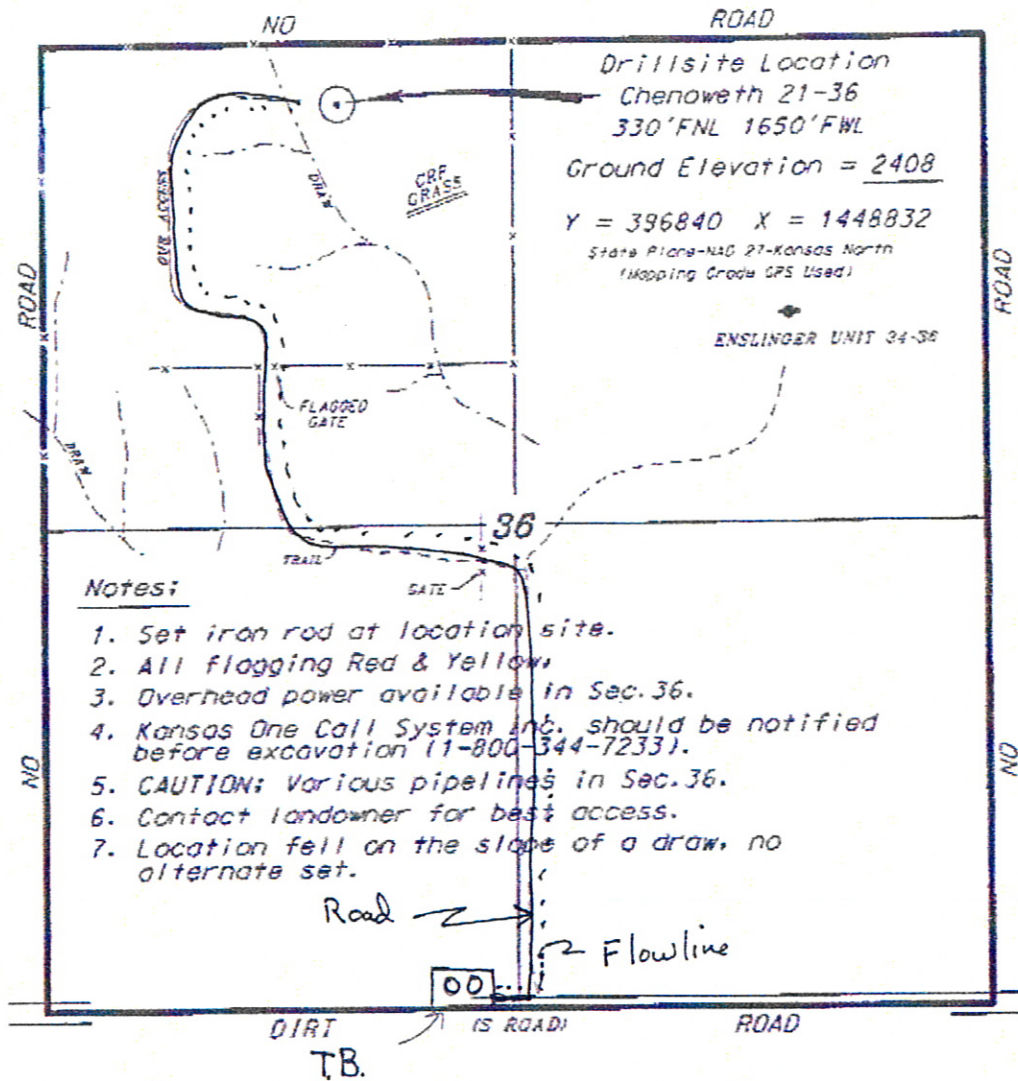 NO ROAD
Drillsite Location
Chenoweth 21-36
330'FNL 1650'FWL
Ground Elevation = 2408
Y = 396840 X = 1448832
State Plane-NAD 27-Kansas North
(Mapping Grade GPS Used)
ENSLINGER UNIT 34-36
CRP
GRASS
DRAW
OUR ACCESS
ROAD
ROAD
FLAGGED
GATE
DRAW
36
TRAIL
GATE
Notes:
1. Set iron rod at location site.
2. All flagging Red & Yellow.
3. Overhead power available in Sec.36.
4. Kansas One Call System Inc. should be notified
before excavation (1-800-344-7233).
5. CAUTION: Various pipelines in Sec.36.
6. Contact landowner for best access.
7. Location fell on the slope of a draw, no
alternate set.
NO
NO
Road
Flowline
OO
DIRT (S ROAD) ROAD
T.B.